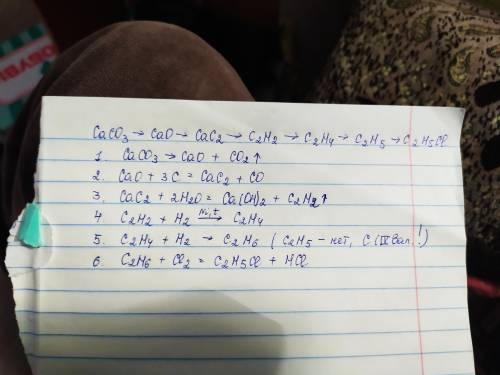 CaCO3 → CaO → CaC2 → C2H2 → C2H4 → C2H5 → C2H5Cl
1. CaCO3 → CaO + CO2↑
2. CaO + 3C = CaC2 + CO
3. CaC2 + 2H2O = Ca(OH)2 + C2H2↑
4. C2H2 + H2 —Ni,t→ C2H4
5. C2H4 + H2 → C2H6 (C2H5 – нет, C IV вал.!)
6. C2H6 + Cl2 = C2H5Cl + HCl